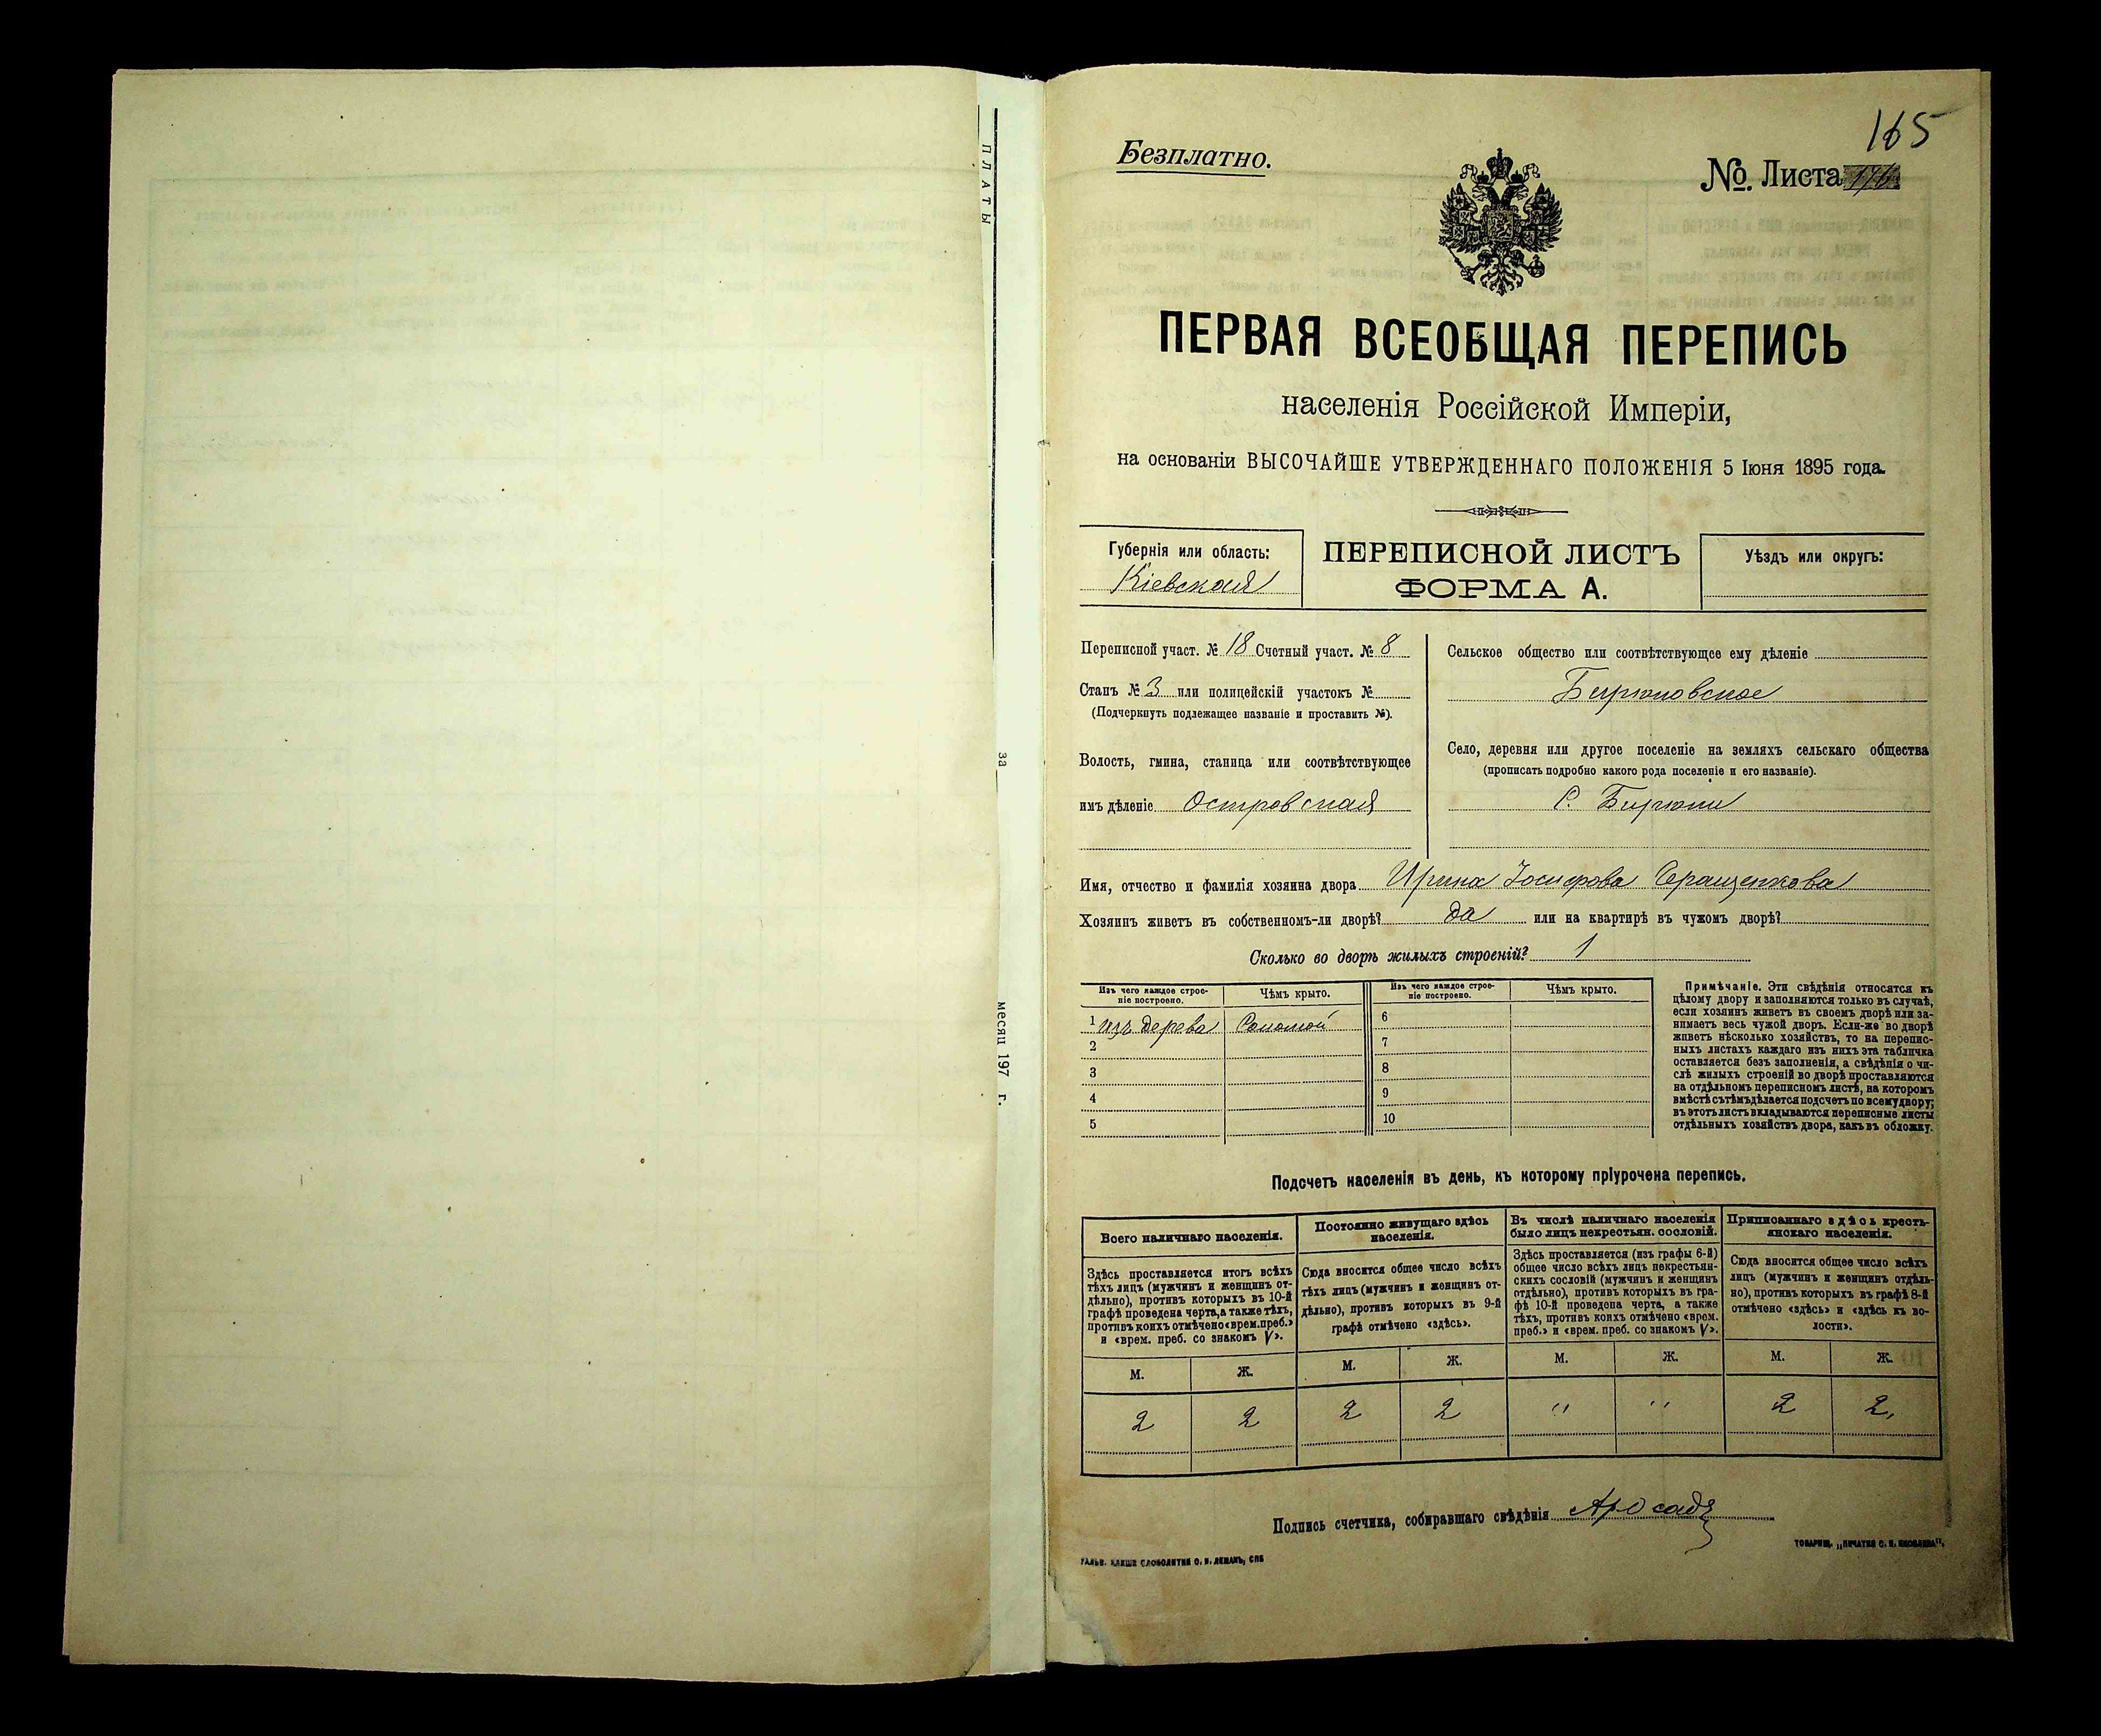 ПЛАТЫ
за
месяц 197 г.
165
Безплатно.
№. Листа
ПЕРВАЯ ВСЕОБЩАЯ ПЕРЕПИСЬ
населенія Россійской Имперіи,
на основаніи ВЫСОЧАЙШЕ УТВЕРЖДЕННАГО ПОЛОЖЕНІЯ 5 Іюня 1895 года.
Губернія или область:
Кіевская
ПЕРЕПИСНОЙ ЛИСТЪ
ФОРМА А.
Уѣздъ или округъ:
Переписной участ. № 18 Счетный участ. № 8
Станъ № 3 или полицейскій участокъ №
(Подчеркнуть подлежащее названіе и проставить №).
Волость, гмина, станица или соотвѣтствующее
имъ дѣленіе Островская
Сельское общество или соотвѣтствующее ему дѣленіе
Бирюковское
Село, деревня или другое поселеніе на земляхъ сельскаго общества
(прописать подробно какого рода поселеніе и его названіе).
С. Бирюки
Имя, отчество и фамилія хозяина двора Ирина Іосифова Геращенкова
Хозяинъ живетъ въ собственномъ-ли дворѣ? да или на квартирѣ въ чужомъ дворѣ?
Сколько во дворѣ жилыхъ строеній? 1
Изъ чего каждое строе-
ніе построено.
Чѣмъ крыто.
Изъ чего каждое строе-
ніе построено.
Чѣмъ крыто.
1 изъ дерева Соломой
2
3
4
5
6
7
8
9
10
Примѣчаніе. Эти свѣдѣнія относятся къ
цѣлому двору и заполняются только въ случаѣ,
если хозяинъ живетъ въ своемъ дворѣ или за-
нимаетъ весь чужой дворъ. Если-же во дворѣ
живетъ нѣсколько хозяйствъ, то на перепис-
ныхъ листахъ каждаго изъ нихъ эта табличка
оставляется безъ заполненія, а свѣдѣнія о чи-
слѣ жилыхъ строеній во дворѣ проставляются
на отдѣльномъ переписномъ листѣ, на которомъ
вмѣстѣ съ тѣмъ дѣлается подсчетъ по всему двору;
въ этотъ листъ вкладываются переписные листы
отдѣльныхъ хозяйствъ двора, какъ въ обложку.
Подсчетъ населенія въ день, къ которому пріурочена перепись.
Всего наличнаго населенія.
Здѣсь проставляется итогъ всѣхъ
тѣхъ лицъ (мужчинъ и женщинъ от-
дѣльно), противъ которыхъ въ 10-й
графѣ проведена черта, а также тѣхъ,
противъ коихъ отмѣчено «врем. преб.»
и «врем. преб. со знакомъ V».
Постоянно живущаго здѣсь
населенія.
Сюда вносится общее число всѣхъ
тѣхъ лицъ (мужчинъ и женщинъ от-
дѣльно), противъ которыхъ въ 9-й
графѣ отмѣчено «здѣсь».
Въ числѣ наличнаго населенія
было лицъ некрестьян. сословій.
Здѣсь проставляется (изъ графы 6-й)
общее число всѣхъ лицъ некрестьян-
скихъ сословій (мужчинъ и женщинъ
отдѣльно), противъ которыхъ въ гра-
фѣ 10-й проведена черта, а также
тѣхъ, противъ коихъ отмѣчено «врем.
преб.» и «врем. преб. со знакомъ V».
Приписаннаго здѣсь кресть-
янскаго населенія.
Сюда вносится общее число всѣхъ
лицъ (мужчинъ и женщинъ отдѣль-
но), противъ которыхъ въ графѣ 8-й
отмѣчено «здѣсь» и «здѣсь къ во-
лости».
М. Ж. М. Ж. М. Ж. М. Ж.
2 2 2 2 " " 2 2,
Подпись счетчика, собиравшаго свѣдѣнія
ГАЛЬВ. КЛИШЕ СЛОВОЛИТНИ О. И. ЛЕМАНЪ, СПБ
ТОВАРИЩ. „ПЕЧАТНЯ С. П. ЯКОВЛЕВА".